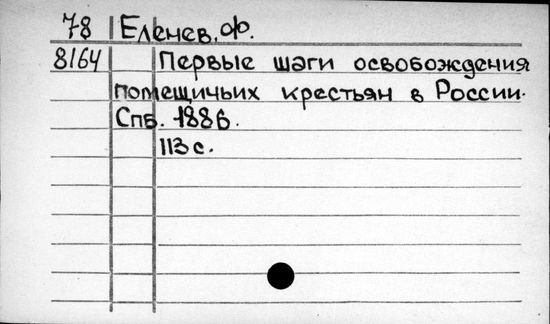 78 Еленев, Ф.
8164 Первые шаги освобождения
помещичьих крестьян в России.
Спб. 1886.
113 с.